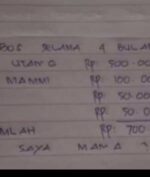 SELAMA 4 BULAN
UTANG Rp. 500.00
MAMMI Rp. 100.00
Rp. 50.00
Rp. 50.0
MLAH Rp. 700
SAYA MANA